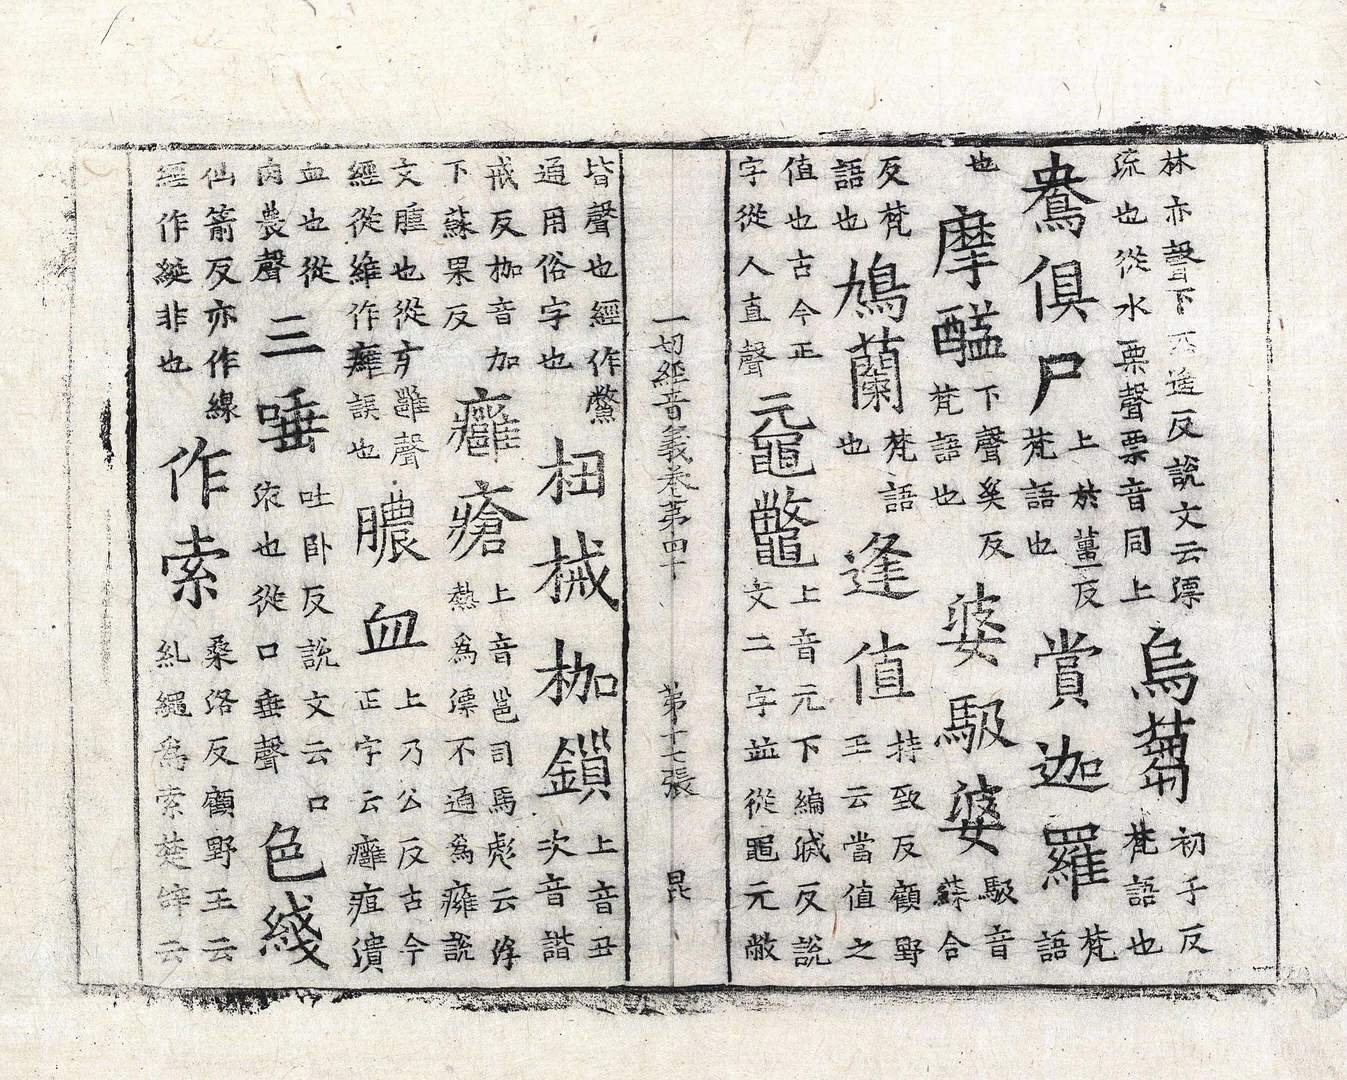 林亦聲下匹遙反說文云漂
流也從水票聲票音同上
烏蒭
初于反
梵語也
鴦俱尸
上於薑反
梵語也
賞迦羅
梵
語
也
摩醯
下聲奚反
梵語也
婆馺婆
馺音
蘇合
反梵
語也
鳩蘭
梵語
也
逢值
持致反顧野
王云當值之
值也古今正
字從人直聲
黿鼈
上音元下編滅反說
文二字並從黽元敝
一切經音義卷第四十 第十七張 昆
皆聲也經作鱉
通用俗字也
杻械枷鏁
上音丑
次音諧
戒反枷音加
下蘇果反
癰瘡
上音邕司馬彪云浮
熱為漂不通為癰說
文腫也從疒雝聲
經從維作癰誤也
膿血
上乃公反古今
正字云癰疽潰
血也從
肉農聲
三唾
吐卧反說文云口
液也從口垂聲
色綫
仙箭反亦作線
經作綖非也
作索
桑洛反顧野王云
糺繩為索楚辭云